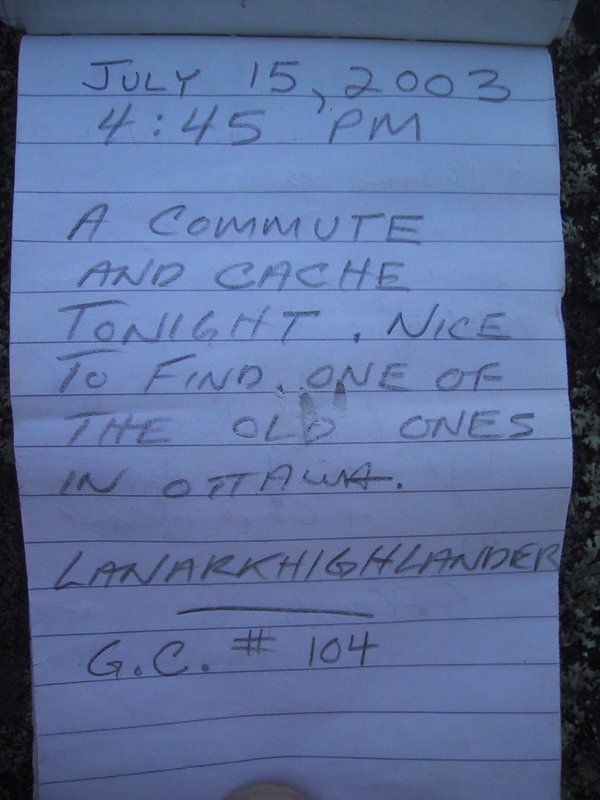 JULY 15, 2003
4:45 PM
A COMMUTE
AND CACHE
TONIGHT. NICE
TO FIND. ONE OF
THE OLD ONES
IN OTTAWA.
LANARKHIGHLANDER
G.C. # 104